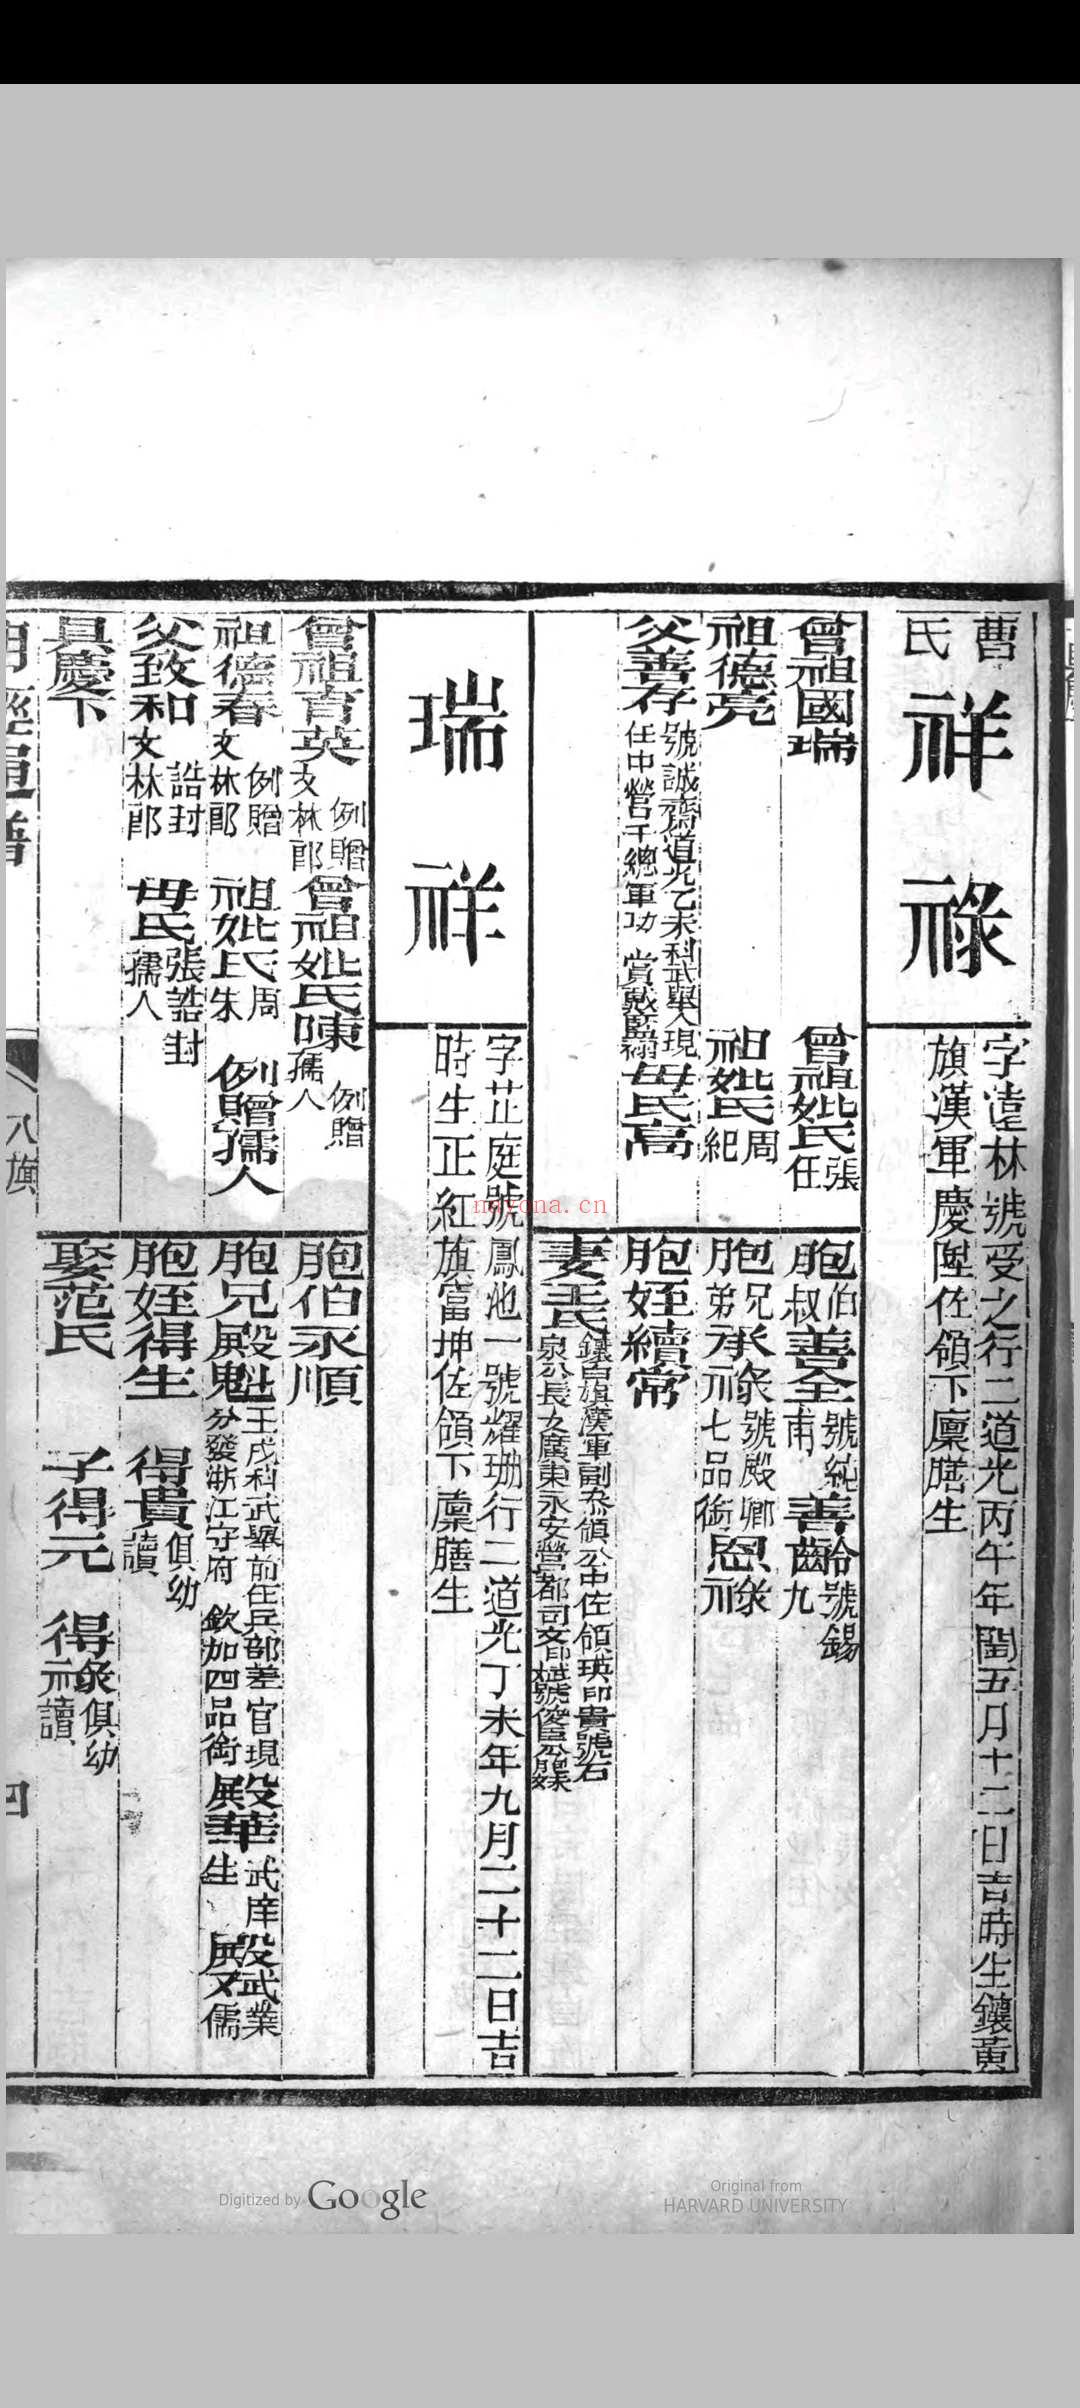 曹氏
祥祿
字遠林號受之行二道光丙午年閏五月十二日吉時生鑲黃
旗漢軍慶陞佐領下廩膳生
曾祖國瑞
曾祖妣氏張任
祖德亮
祖妣氏周紀
父善存號誠齋道光乙未科武舉人現任中營千總軍功賞戴藍翎
母氏高
胞伯叔善全號純甫善齡號錫九
胞兄弟承祿號殿卿七品銜恩祿
胞姪續常
妻王氏鑲白旗漢軍副叅領公中佐領瑛印貴號石泉公長女廣東永安營都司文印
瑞祥
字芷庭號鳳池一號耀珊行二道光丁未年九月二十二日吉
時生正紅旗富坤佐領下廩膳生
曾祖育英例贈文林郎
曾祖妣氏陳例贈孺人
祖德春例贈文林郎
祖妣氏周朱例贈孺人
父致和誥封文林郎
母氏張誥封孺人
具慶下
胞伯永順
胞兄殿魁壬戌科武舉前任兵部差官現分發浙江守府欽加四品銜殿華武庠生殿武殿文業儒
胞姪得生得貴俱幼讀
娶范氏
子得元得祿俱幼讀
明經通譜
八旗
四
nayona.cn
Digitized by Google
Original from
HARVARD UNIVERSITY